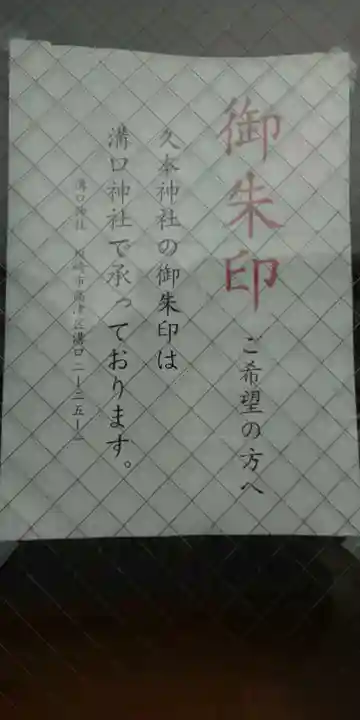 御朱印 ご希望の方へ
久本神社の御朱印は
溝口神社で承っております。
溝口神社 川崎市高津区溝口二ー二五ー一